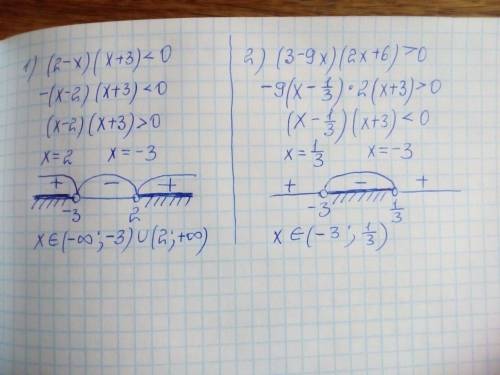 1) (2-x)(x+3)<0
-(x-2)(x+3)<0
(x-2)(x+3)>0
x=2 x=-3
+ - +
-3 2
x∈(-∞;-3)∪(2;+∞)
2) (3-9x)(2x+6)>0
-9(x-1/3)·2(x+3)>0
(x-1/3)(x+3)<0
x=1/3 x=-3
+ - +
-3 1/3
x∈(-3;1/3)